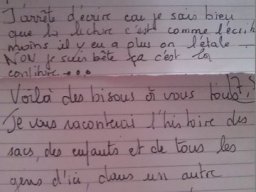 J'arrête d'écrire car je sais bien
que la lecture c'est comme l'écrit
moins il y en a plus on l'étale.
NON je suis bête ça c'est la
confiture...
Voilà des bisous à vous tous
Je vous raconterai l'histoire des
sacs, des enfants et de tous les
gens d'ici dans un autre